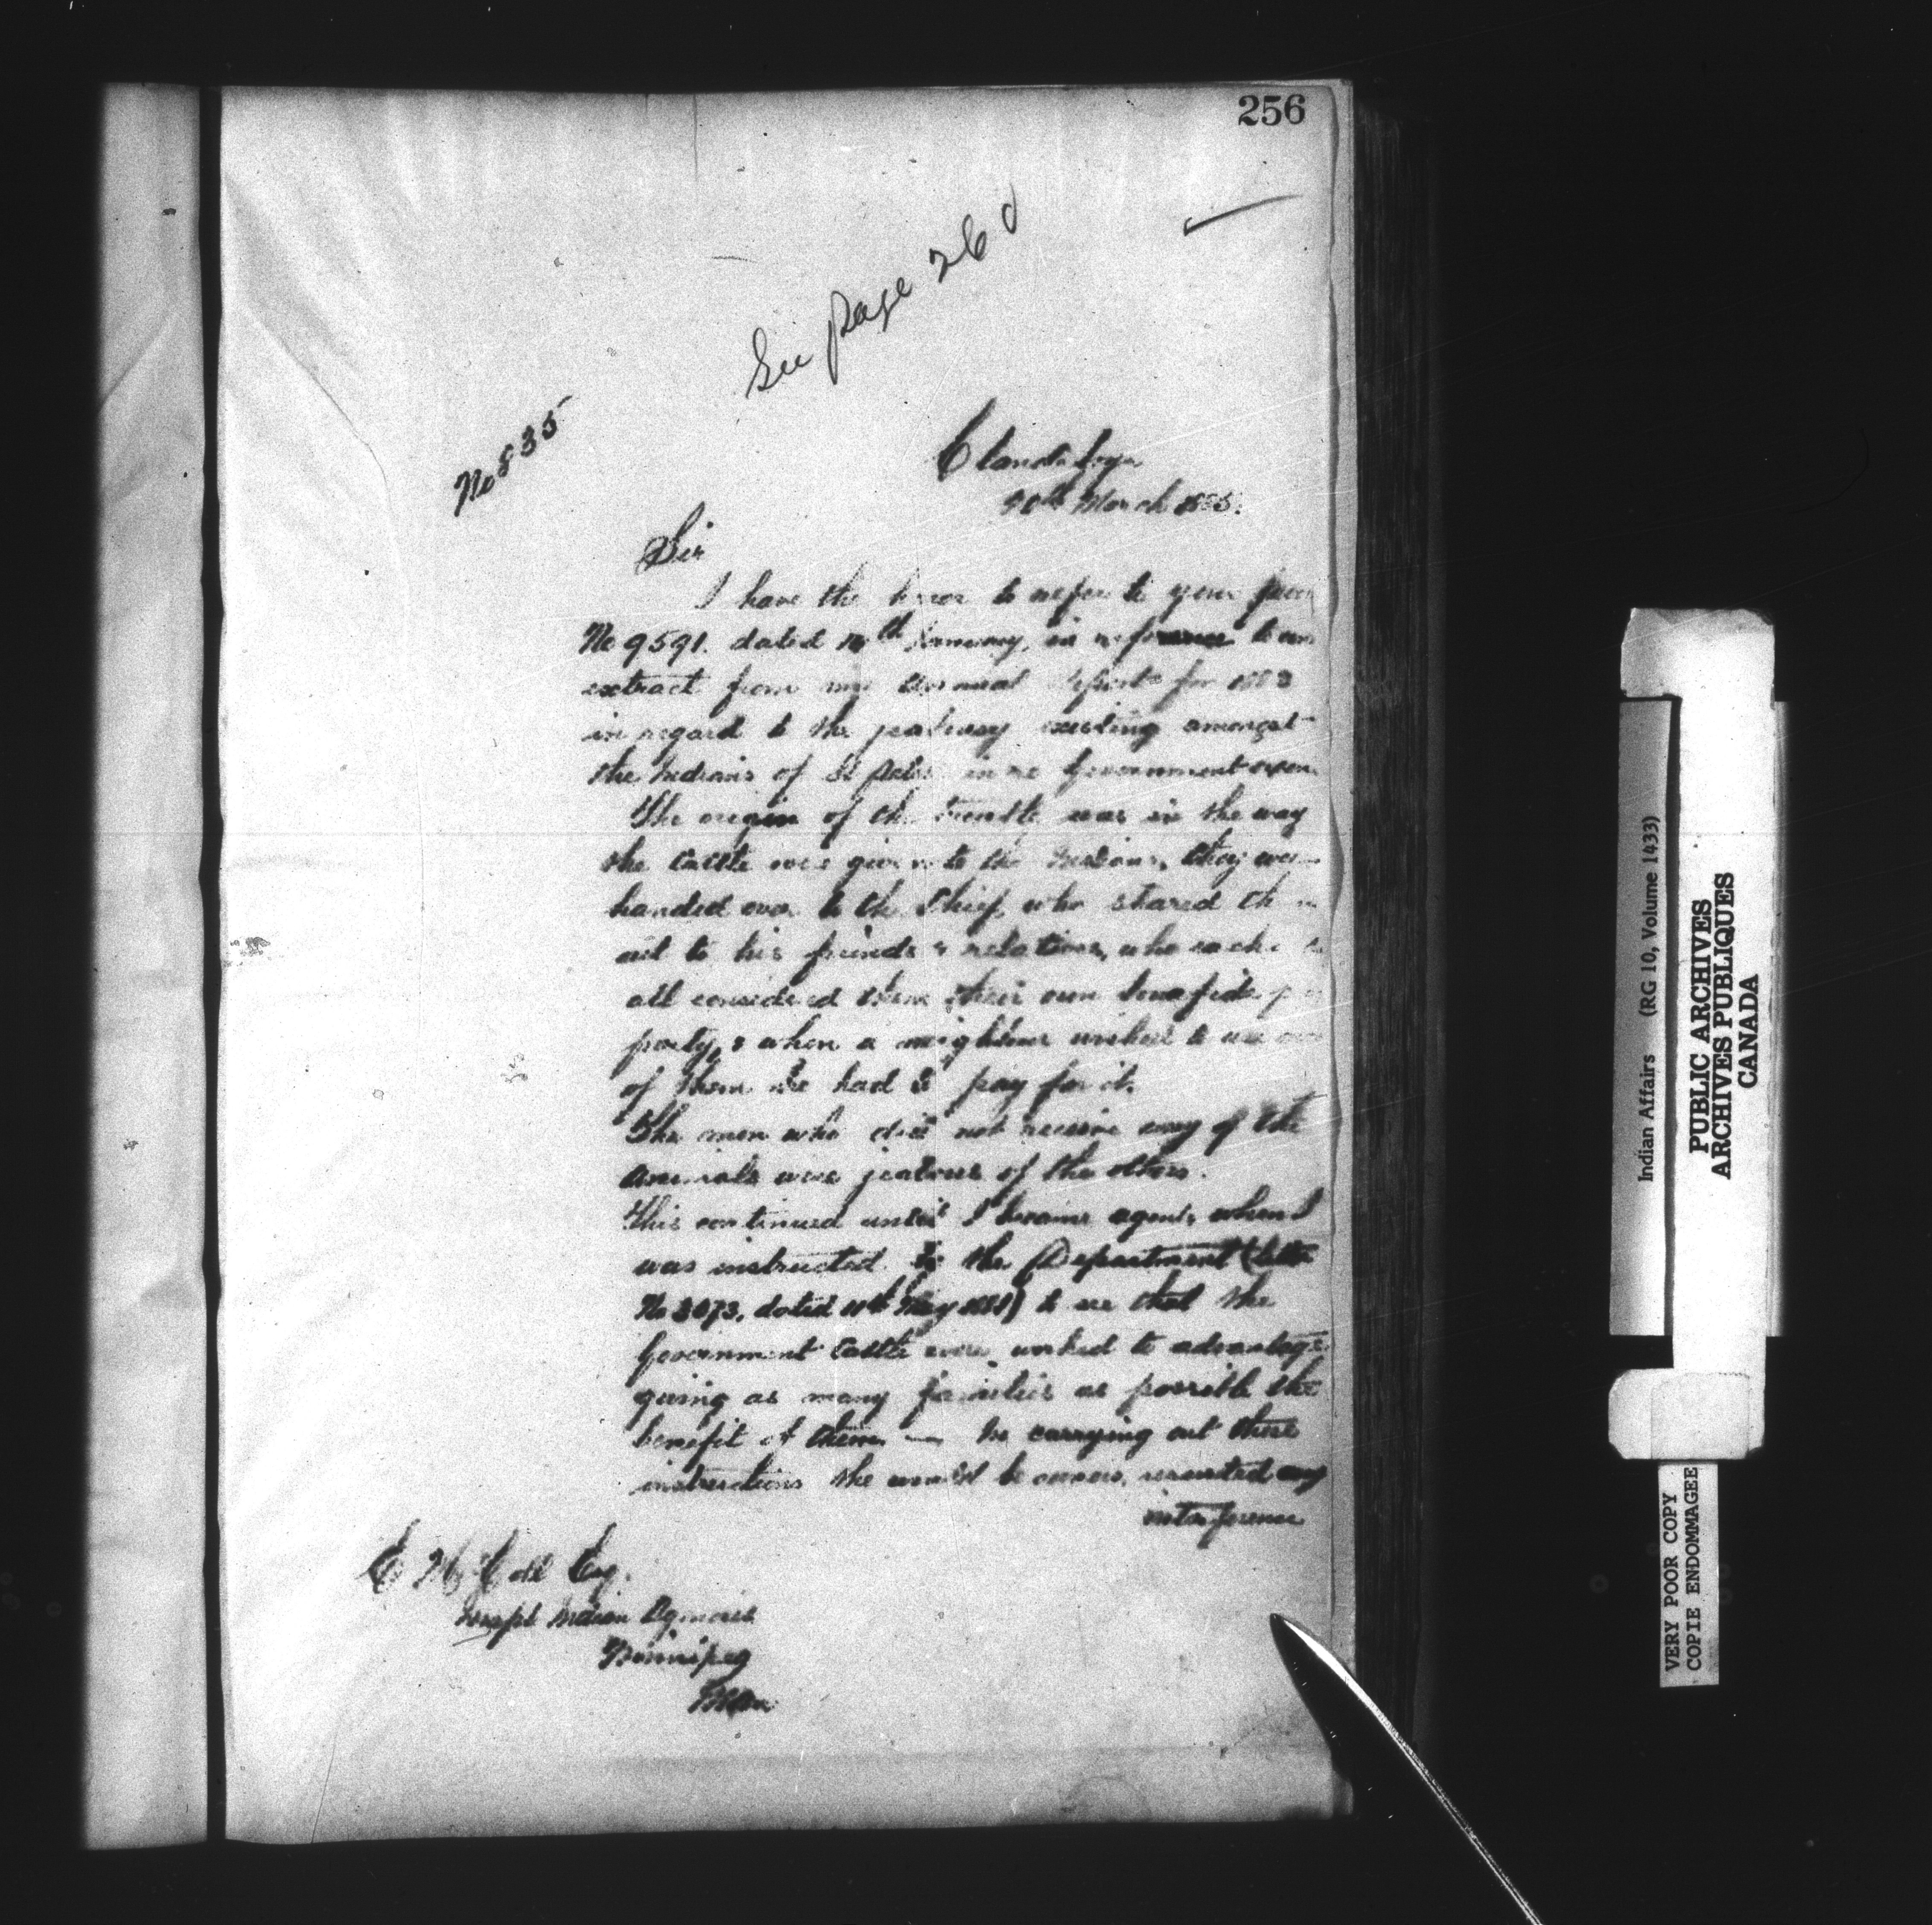 256
See page 260
No 835
Clandeboye
20th March 1885.
Sir
I have the honor to refer to your favor
No 9591. dated January, in reference to an
extract from my Annual Report for 1883
in regard to the jealousy existing amongst
the Indians of St Peters in re Government oxen
The origin of the trouble was in the way
the Cattle were given to the Indians, they were
handed over to the Chief, who shared them
out to his friends & relations, who each &
all considered them their own bonafide pro
perty, & when a neighbour wished to use one
of them he had to pay for it.
The men who did not receive any of the
animals were jealous of the others.
This continued until I became agent, when I
was instructed by the Department (letter
No 3073, dated 11th May 1881) to see that the
Government Cattle were worked to advantage
giving as many families as possible the
benefit of them — In carrying out these
instructions the would be owners, resented any
interference
E McColl Esq.
Inspt Indian Agencies
Winnipeg
Man
Indian Affairs (RG 10, Volume 1433)
PUBLIC ARCHIVES
ARCHIVES PUBLIQUES
CANADA
VERY POOR COPY
COPIE ENDOMMAGEE